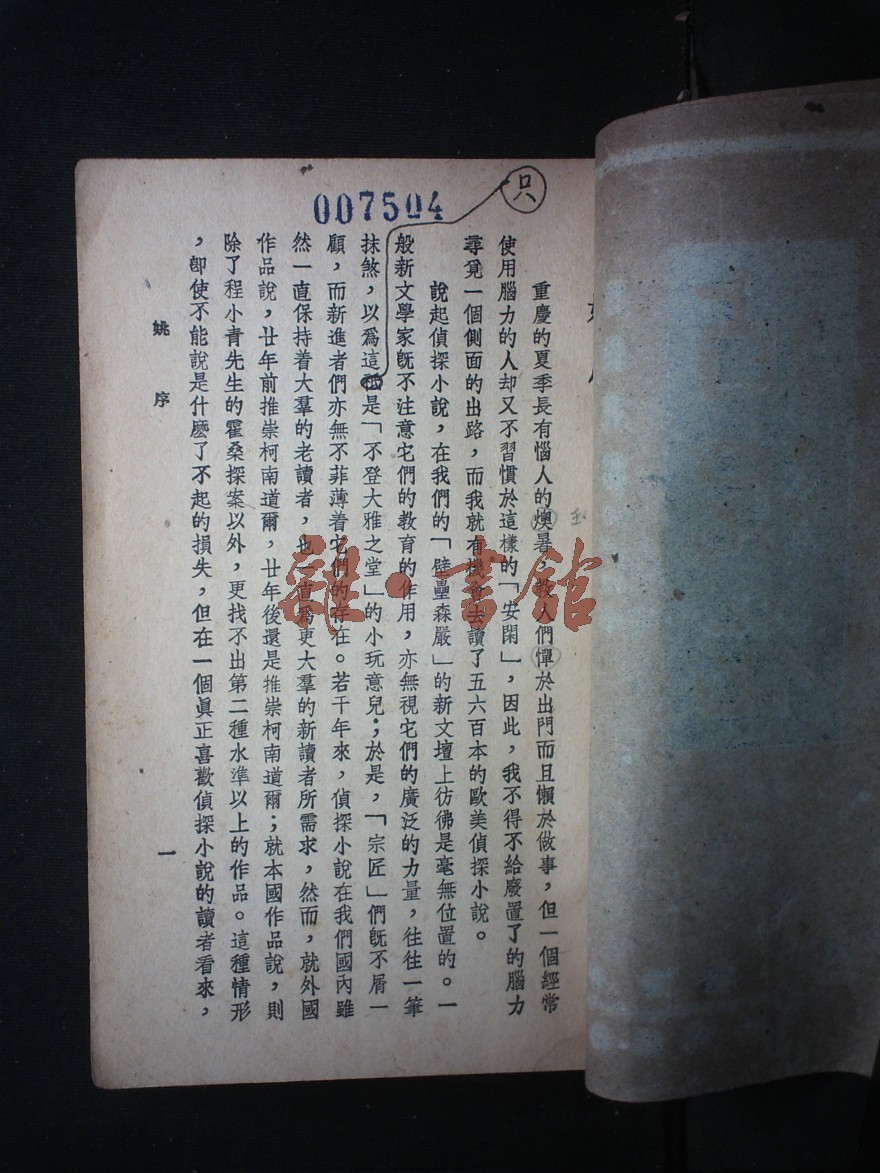 007504
只
重慶的夏季長有惱人的燠暑，教人們憚於出門而且懶於做事，但一個經常
使用腦力的人却又不習慣於這樣的「安閑」，因此，我不得不給廢置了的腦力
尋覓一個側面的出路，而我就有機會去讀了五六百本的歐美偵探小說。
說起偵探小說，在我們的「壁壘森嚴」的新文壇上彷彿是毫無位置的。一
般新文學家旣不注意它們的教育的作用，亦無視它們的廣泛的力量，往往一筆
抹煞，以爲這是「不登大雅之堂」的小玩意兒；於是，「宗匠」們旣不屑一
顧，而新進者們亦無不菲薄着它們的存在。若干年來，偵探小說在我們國內雖
然一直保持着大羣的老讀者，也一直爲更大羣的新讀者所需求，然而，就外國
作品說，廿年前推崇柯南道爾，廿年後還是推崇柯南道爾；就本國作品說，則
除了程小青先生的霍桑探案以外，更找不出第二種水準以上的作品。這種情形
，卽使不能說是什麽了不起的損失，但在一個眞正喜歡偵探小說的讀者看來，
姚序
一
雜·書館